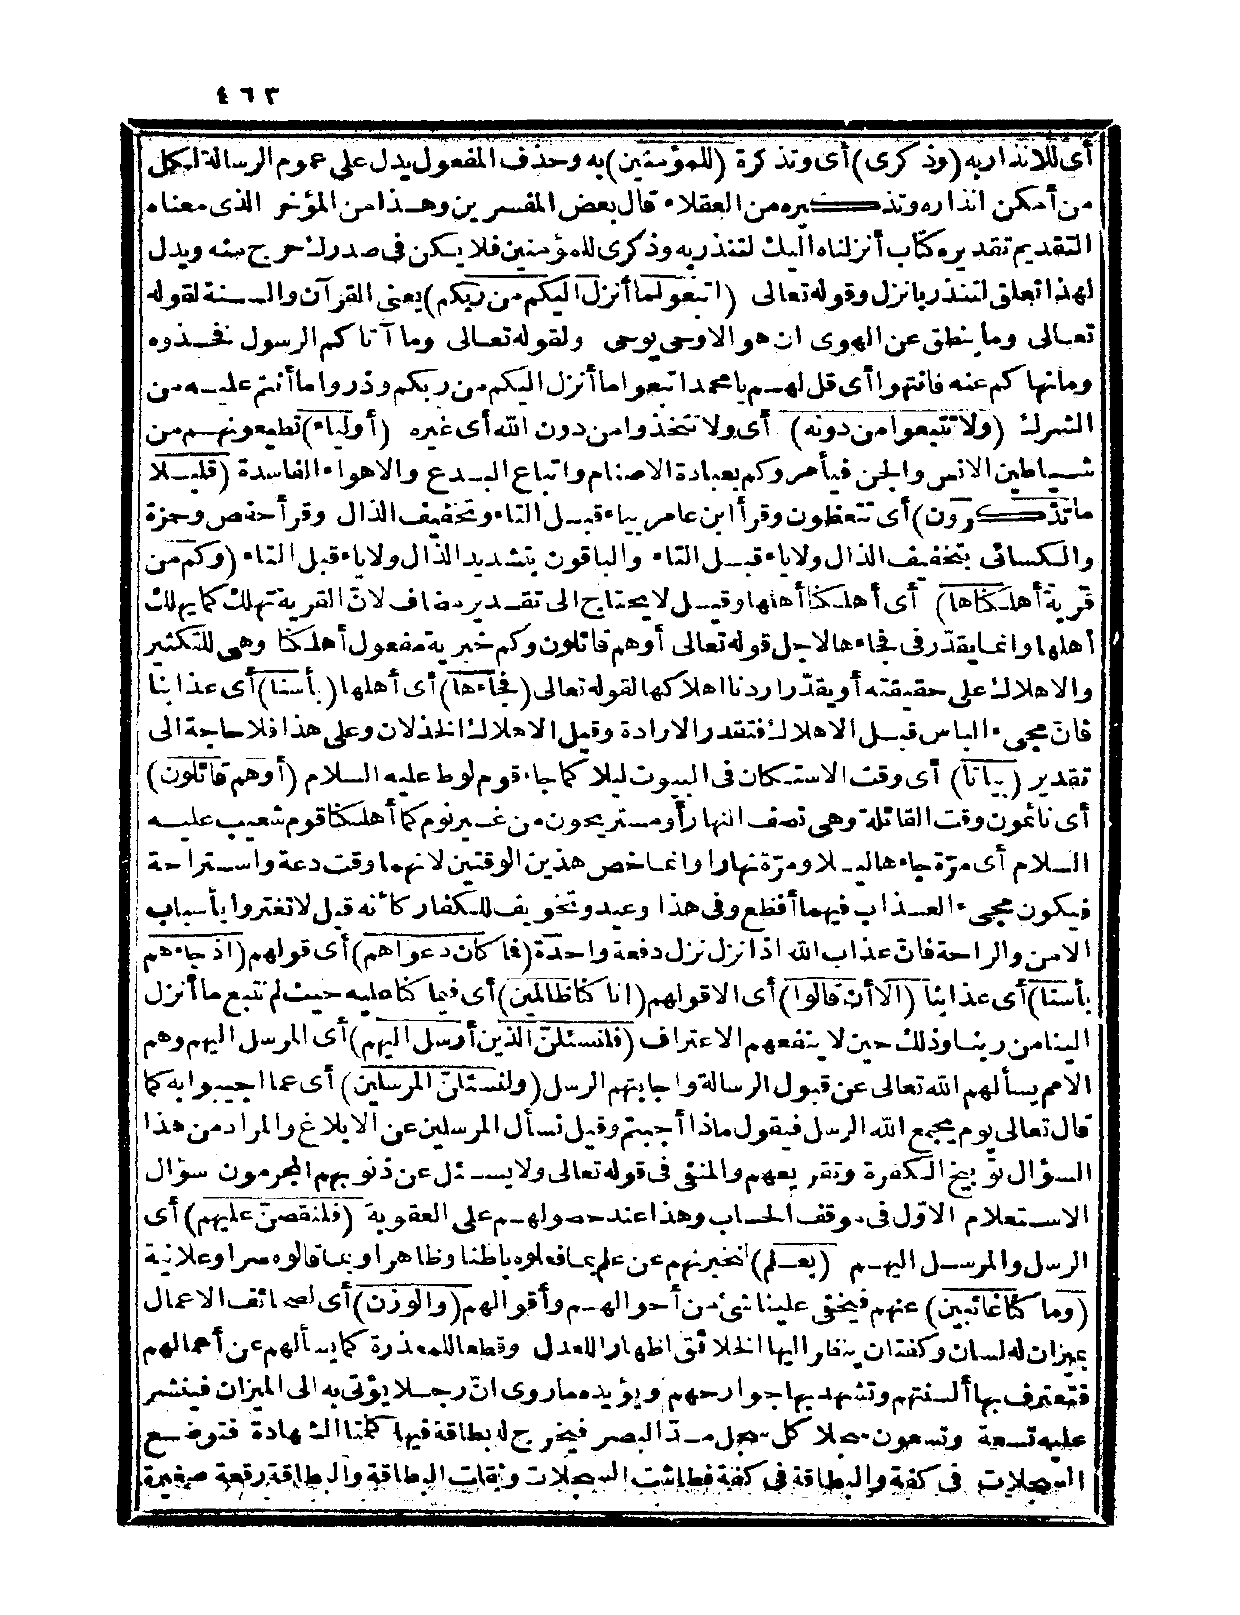 ٤٦٣
أى للانذار به (وذكرى) أى وتذكرة (للمؤمنين) به وحذف المفعول يدل على عموم الرسالة لكل
من أمكن انذاره وتذكيره من العقلاء قال بعض المفسرين وهذا من المؤخر الذى معناه
التقديم تقديره كتاب أنزلناه اليك لتنذر به وذكرى للمؤمنين فلا يكن فى صدرك حرج منه ويدل
لهذا تعلق لتنذر بانزل وقوله تعالى (اتبعوا ما أنزل اليكم من ربكم) يعنى القرآن والسنة لقوله
تعالى وما ينطق عن الهوى ان هو الا وحى يوحى ولقوله تعالى وما آتاكم الرسول فخذوه
وما نهاكم عنه فانتهوا أى قل لهم يا محمد اتبعوا ما أنزل اليكم من ربكم وذروا ما أنتم عليه من
الشرك (ولا تتبعوا من دونه) أى ولا تتخذوا من دون الله أى غيره (أولياء) تطيعونهم من
شياطين الانس والجن فيأمروكم بعبادة الاصنام واتباع البدع والاهواء الفاسدة (قليلا
ما تذكرون) أى تتعظون وقرأ ابن عامر بياء قبل التاء وتخفيف الذال وقرأ حفص وحمزة
والكسائى بتخفيف الذال ولا ياء قبل التاء والباقون بتشديد الذال ولا ياء قبل التاء (وكم من
قرية أهلكناها) أى أهلكنا أهلها وقيل لا يحتاج الى تقدير مضاف لانّ القرية تهلك كما يهلك
أهلها وانما يقدّر فى فجاءها لاجل قوله تعالى أوهم قائلون وكم خبرية مفعول أهلكنا وهى للتكثير
والاهلاك على حقيقته أو يقدّر أردنا اهلاكها لقوله تعالى (فجاءها) أى أهلها (بأسنا) أى عذابنا
فانّ مجىء الباس قبل الاهلاك فتقدر الارادة وقيل الاهلاك الخذلان وعلى هذا فلا حاجة الى
تقدير (بياتا) أى وقت الاستكان فى البيوت ليلا كما جاء قوم لوط عليه السلام (أوهم قائلون)
أى نائمون وقت القائلة وهى نصف النهار أو مستريحون من غير نوم كما أهلكنا قوم شعيب عليه
السلام أى مرّة جاءها ليلا ومرّة نهارا وانما خص هذين الوقتين لانهما وقت دعة واستراحة
فيكون مجىء العذاب فيهما أفظع وفى هذا وعيد وتخويف للكفار كأنه قيل لا تغتروا بأسباب
الامن والراحة فانّ عذاب الله اذا نزل نزل دفعة واحدة (فما كان دعواهم) أى قولهم (اذ جاءهم
بأسنا) أى عذابنا (الا أن قالوا) أى الا قولهم (انا كنا ظالمين) أى فيما كنا عليه حيث لم نتبع ما أنزل
الينا من ربنا وذلك حين لا ينفعهم الاعتراف (فلنسئلنّ الذين أرسل اليهم) أى المرسل اليهم وهم
الامم يسألهم الله تعالى عن قبول الرسالة واجابتهم الرسل (ولنسئلنّ المرسلين) أى عما اجيبوا به كما
قال تعالى يوم يجمع الله الرسل فيقول ماذا أجبتم وقيل نسأل المرسلين عن الابلاغ والمراد من هذا
السؤال توبيخ الكفرة وتقريعهم والمنفى فى قوله تعالى ولا يسئل عن ذنوبهم المجرمون سؤال
الاستعلام الاوّل فى موقف الحساب وهذا عند حصولهم على العقوبة (فلنقصنّ عليهم) أى
الرسل والمرسل اليهم (بعلم) لنخبرنهم عن علم بما فعلوه باطنا وظاهرا وبما قالوه سرا وعلانية
(وما كنا غائبين) عنهم فيخفى علينا شئ من أحوالهم وأقوالهم (والوزن) أى لصحائف الاعمال
بميزان له لسان وكفتان ينظر اليها الخلائق اظهارا للعدل وقطعا للمعذرة كما يسألهم عن أعمالهم
فتعترف بها ألسنتهم وتشهد بها جوارحهم ويؤيده ما روى انّ رجلا يؤتى به الى الميزان فينشر
عليه تسعة وتسعون سجلا كل سجل مدّ البصر فيخرج له بطاقة فيها كلتا الشهادة فتوضع
السجلات فى كفة والبطاقة فى كفة فطاشت السجلات وثقلت البطاقة والبطاقة رقعة صغيرة